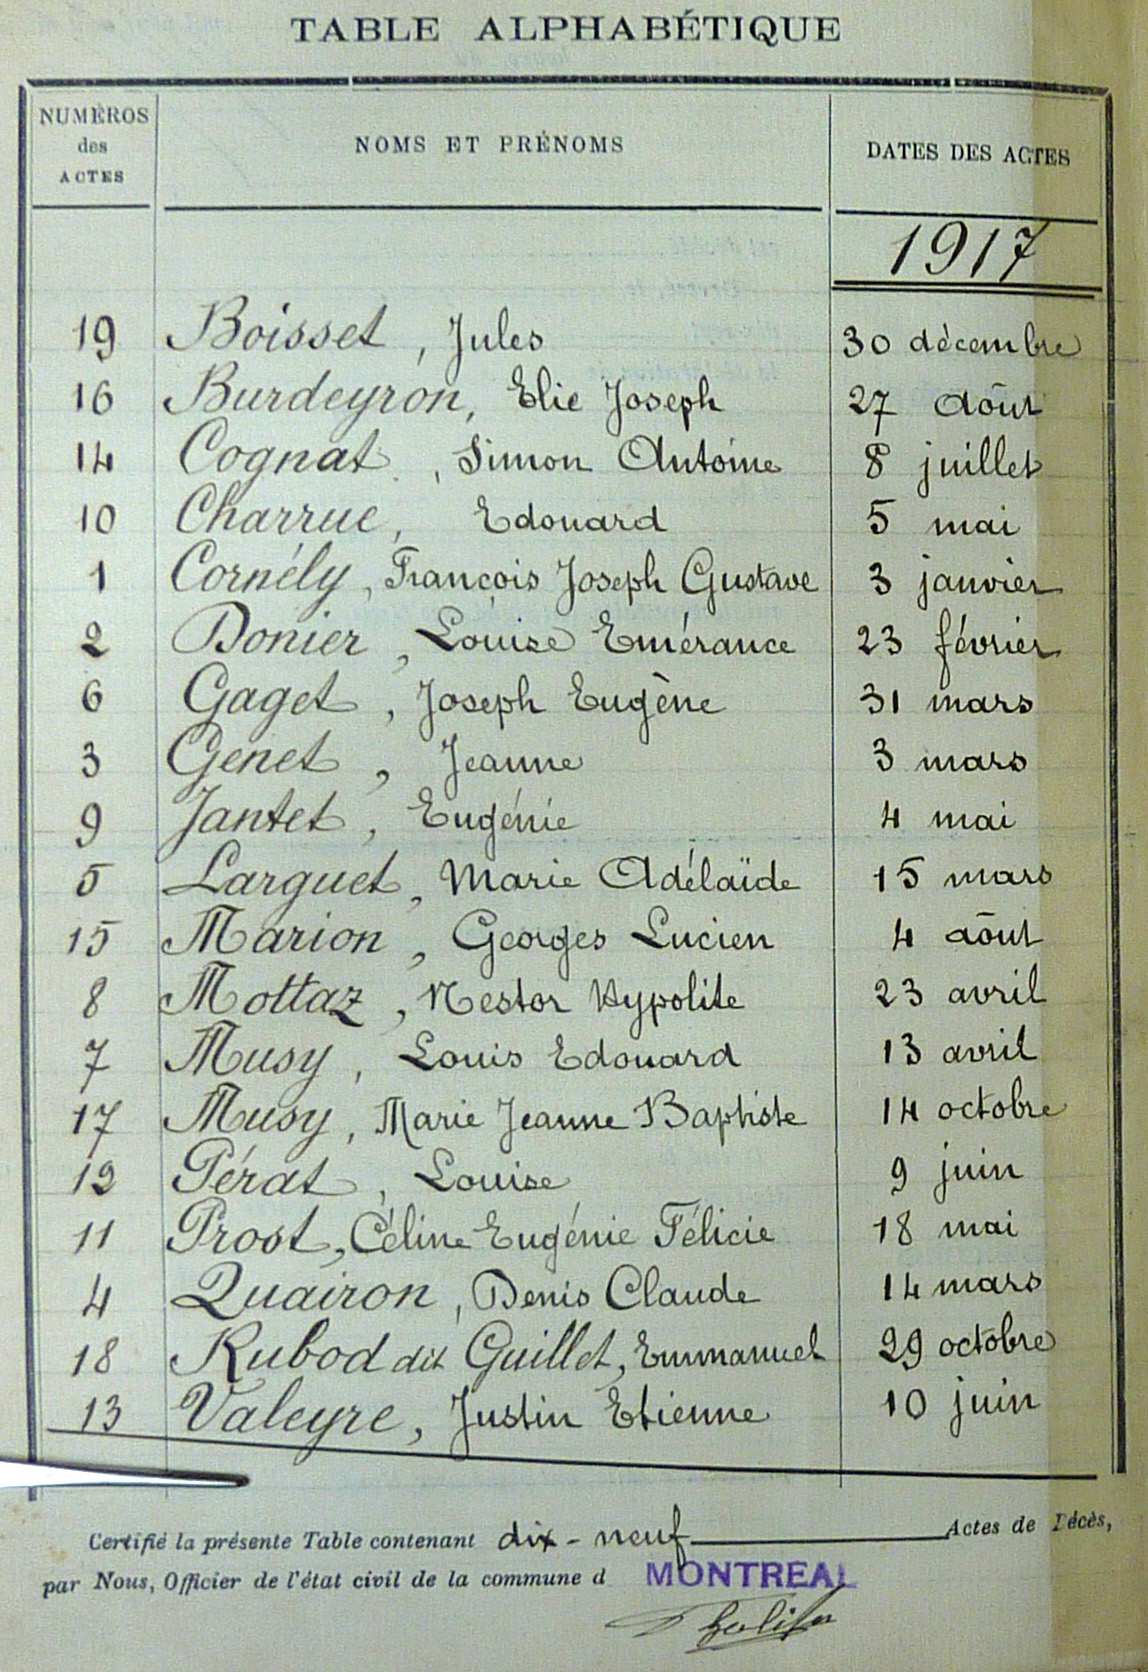 TABLE ALPHABÉTIQUE
NUMÉROS des ACTES NOMS ET PRÉNOMS DATES DES ACTES
1917
19 Boisset, Jules 30 décembre
16 Burdeyron, Elie Joseph 27 août
14 Cognat, Simon Antoine 8 juillet
10 Charrue, Edouard 5 mai
1 Cornély, François Joseph Gustave 3 janvier
2 Donier, Louise Emérance 23 février
6 Gaget, Joseph Eugène 31 mars
3 Genet, Jeanne 3 mars
9 Jantet, Eugénie 4 mai
5 Larguet, Marie Adélaïde 15 mars
15 Marion, Georges Lucien 4 août
8 Mottaz, Nestor Hypolite 23 avril
7 Musy, Louis Edouard 13 avril
17 Musy, Marie Jeanne Baptiste 14 octobre
12 Pérat, Louise 9 juin
11 Prost, Céline Eugénie Félicie 18 mai
4 Quairon, Denis Claude 14 mars
18 Rubod dit Guillet, Emmanuel 29 octobre
13 Valeyre, Justin Etienne 10 juin
Certifié la présente Table contenant dix-neuf Actes de Décès,
par Nous, Officier de l'état civil de la commune d MONTREAL